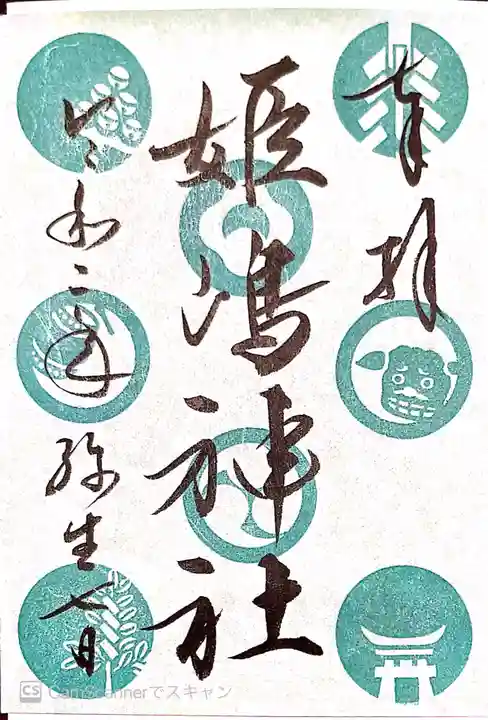 奉拝
姫嶋神社
令和二年 弥生七日
CS CamScannerでスキャン